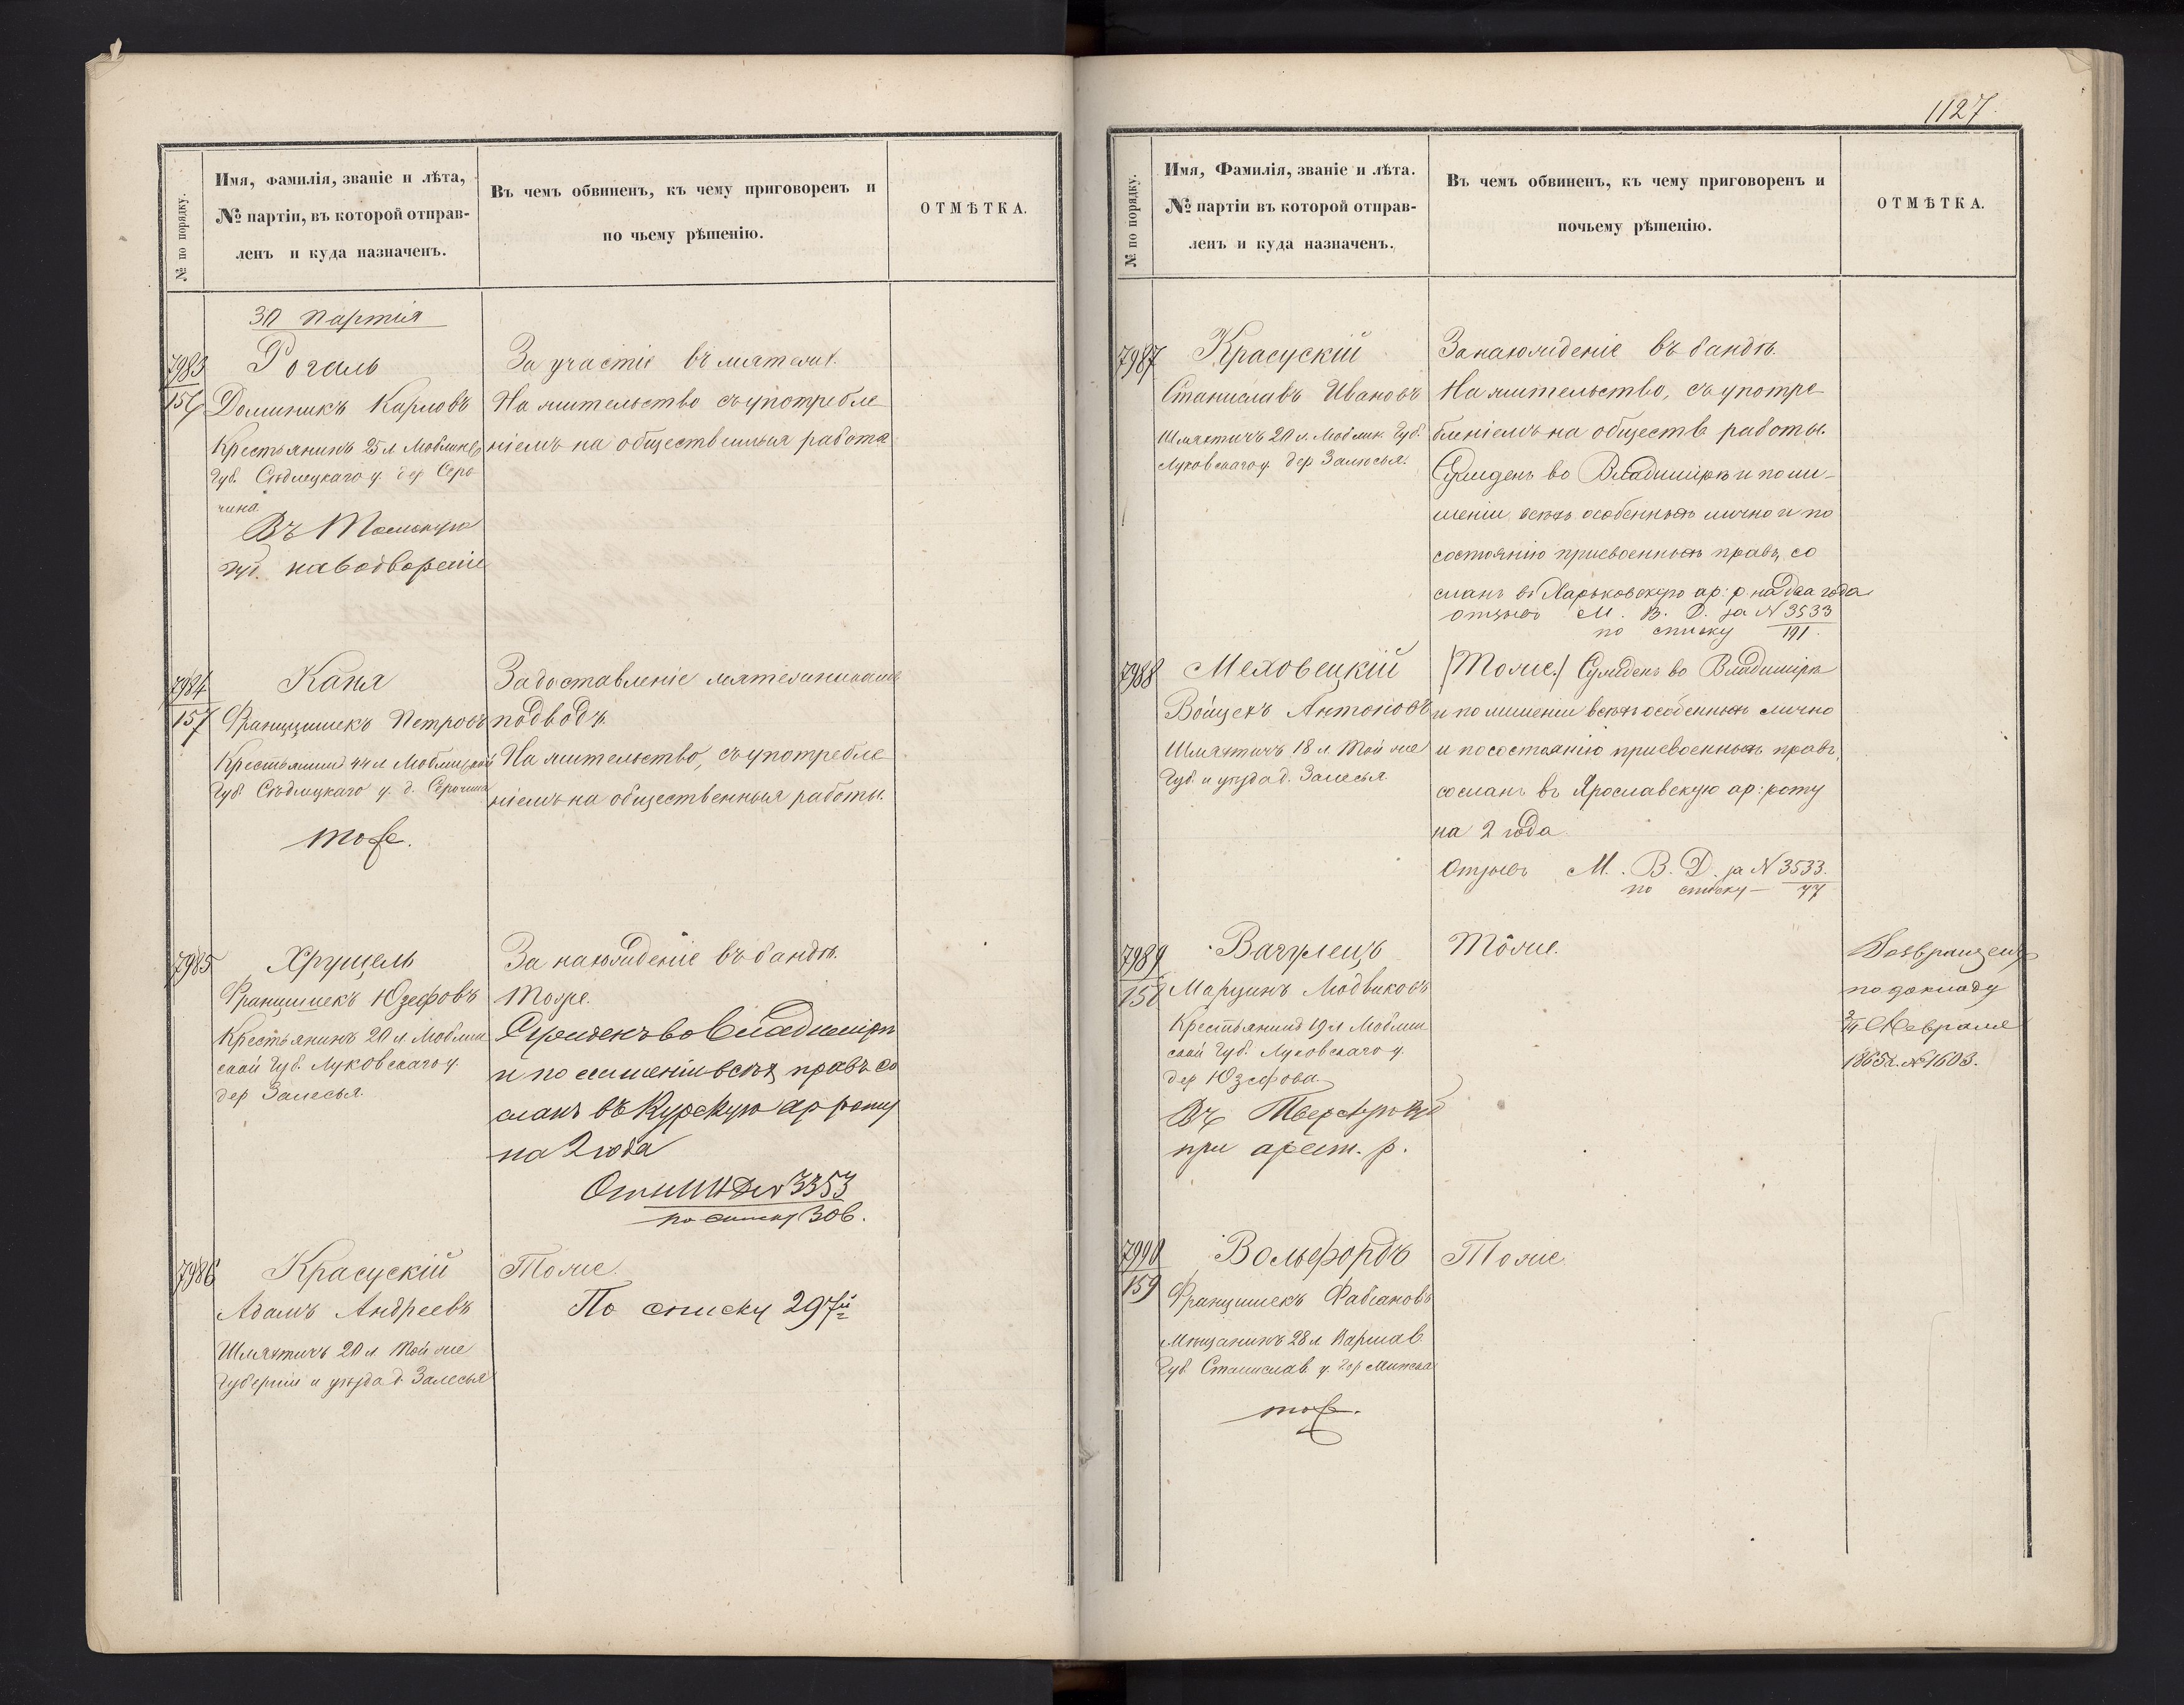 № по порядку.
Имя, фамилія, званіе и лѣта,
№ партіи, въ которой отправ-
ленъ и куда назначенъ.
Въ чемъ обвиненъ, къ чему приговоренъ и
по чьему рѣшенію.
ОТМѢТКА.
30 партія
7983
156
Рогаль
Доминикъ Карловъ
Крестьянинъ 25 л Люблинс
Губ. Сѣдлецкаго у. дер Серо
чина
Въ Томскую
губ. на водвореніе
За участіе въ мятежѣ.
На жительство съ употребле
ніемъ на общественныя работы
7984
157
Каня
Францишекъ Петровъ
Крестьянинъ 44 л Люблинской
Губ. Сѣдлецкаго у. д. Серочина
тоже.
За доставленіе мятежникамъ
подводъ.
На жительство, съ употребле
ніемъ на общественныя работы.
7985
Хрущель
Францишекъ Юзефовъ
Крестьянинъ 20 л. Люблин
ской Губ. Луковскаго у.
дер Залесья.
За нахожденіе въ бандѣ.
Тоже.
Сужденъ во Владимірѣ
и по лишеніи всѣхъ правъ со
сланъ въ Курскую ар роту
на 2 года
3353
по списку 306.
7986
Красускій
Адамъ Андреевъ
Шляхтичъ 20 л. Той же
Губерніи и уѣзда д. Залесья
Тоже.
По списку 297й
1127
№ по порядку.
Имя, Фамилія, званіе и лѣта.
№ партіи въ которой отправ-
ленъ и куда назначенъ.
Въ чемъ обвиненъ, къ чему приговоренъ и
почьему рѣшенію.
ОТМѢТКА.
7987
Красускій
Станиславъ Ивановъ
Шляхтичъ 20 л. Люблин. Губ.
Луковскаго у. дер Залесья.
За нахожденіе въ бандѣ.
На жительство, съ употре
бленіемъ на обществ работы.
Сужденъ во Владимірѣ и по ли-
шеніи всѣхъ особенныхъ лично и по
состоянію присвоенныхъ правъ, со
сланъ въ Харьковскую ар: р. на два года
отзывъ М. В. Д. за N 3533
по списку 191.
7988
Меховецкій
Войцехъ Антоновъ
Шляхтичъ 18 л Той же
Губ. и уѣзда д. Залесья.
(Тоже.) Сужденъ во Владимірѣ
и по лишеніи всѣхъ особенныхъ лично
и по состоянію присвоенныхъ правъ,
сосланъ въ Ярославскую ар: роту
на 2 года.
Отзывъ М. В. Д. за N 3533.
по списку – 77
7989
158
Марцинъ
Крестьянинъ 19 л Люблин
ской Губ. Луковскаго у.
дер Юзефова.
Въ Тверскую губ
при арест. р.
Тоже.
Возвращенъ
по докладу
3/III Февраля
1865г. № 1603.
7990
159
Вольфордъ
Францишекъ Фабіановъ
Мѣщанинъ 28 л Варшав.
Губ. Станислав. у. гор Минска
тоже.
Тоже